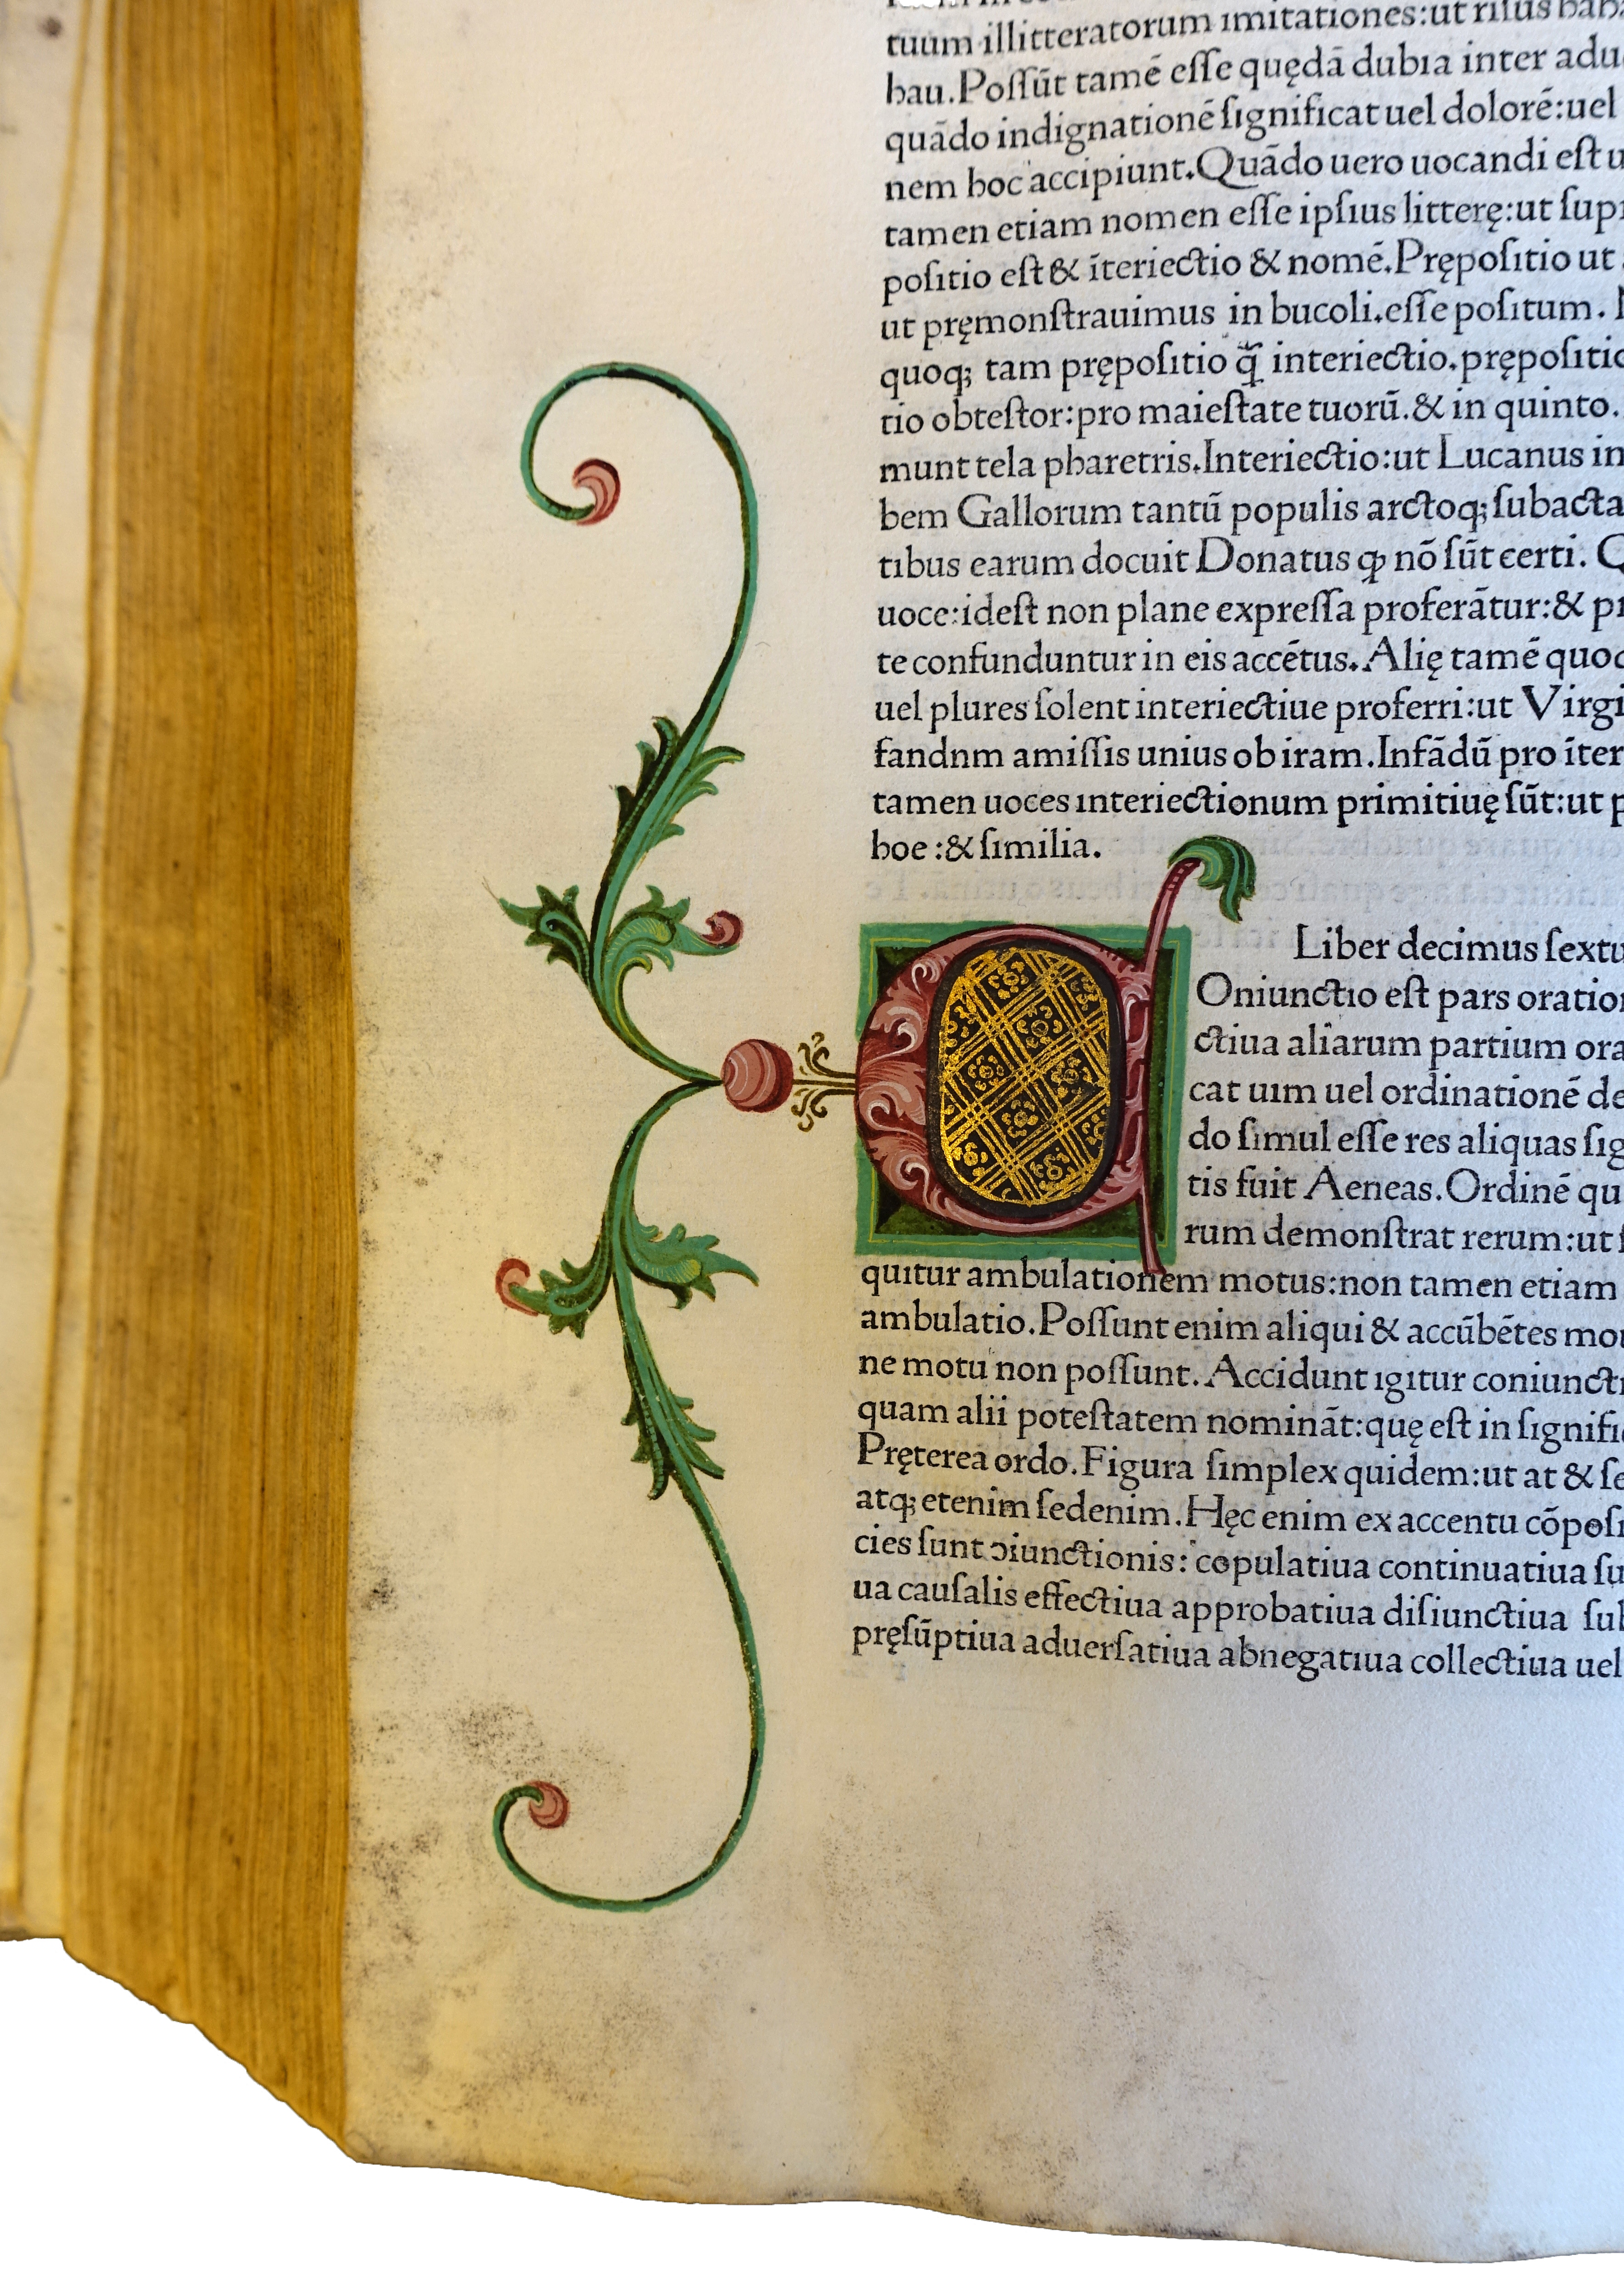 tuum illitteratorum imitationes:ut riſus hah
hau.Poſſũt tamẽ eſſe quędã dubia inter adu
quãdo indignationẽ ſignificat uel dolorẽ:uel
nem hoc accipiunt.Quãdo uero uocandi eſt u
tamen etiam nomen eſſe ipſius litterę:ut ſupr
poſitio eſt & ĩteriectio & nomẽ.Prępoſitio ut
ut pręmonſtrauimus in bucoli.eſſe poſitum.
quoq; tam prępoſitio q̃ interiectio.prępoſitio
tio obteſtor:pro maieſtate tuorũ.& in quinto.
munt tela pharetris.Interiectio:ut Lucanus in
bem Gallorum tantũ populis arctoq; ſubacta
tibus earum docuit Donatus ꝙ nõ ſũt certi. Q
uoce:ideſt non plane expreſſa proferãtur:& pr
te confunduntur in eis accẽtus.Alię tamẽ quoq
uel plures ſolent interiectiue proferri:ut Virgi
fandnm amiſſis unius ob iram.Infãdũ pro ĩter
tamen uoces interiectionum primitiuę ſũt:ut p
hoe :& ſimilia.
Liber decimus ſextu
C Oniunctio eſt pars oration
ctiua aliarum partium ora
cat uim uel ordinationẽ de
do ſimul eſſe res aliquas ſig
tis fuit Aeneas.Ordinẽ qu
rum demonſtrat rerum:ut ſ
quitur ambulationem motus:non tamen etiam
ambulatio.Poſſunt enim aliqui & accũbẽtes mou
ne motu non poſſunt. Accidunt igitur coniuncti
quam alii poteſtatem nominãt:quę eſt in ſignifi
Pręterea ordo.Figura ſimplex quidem:ut at & ſe
atq; etenim ſedenim.Hęc enim ex accentu cõpoſi
cies ſunt ↄiunctionis: copulatiua continuatiua ſu
ua cauſalis effectiua approbatiua diſiunctiua ſub
pręſũptiua aduerſatiua abnegatiua collectiua uel